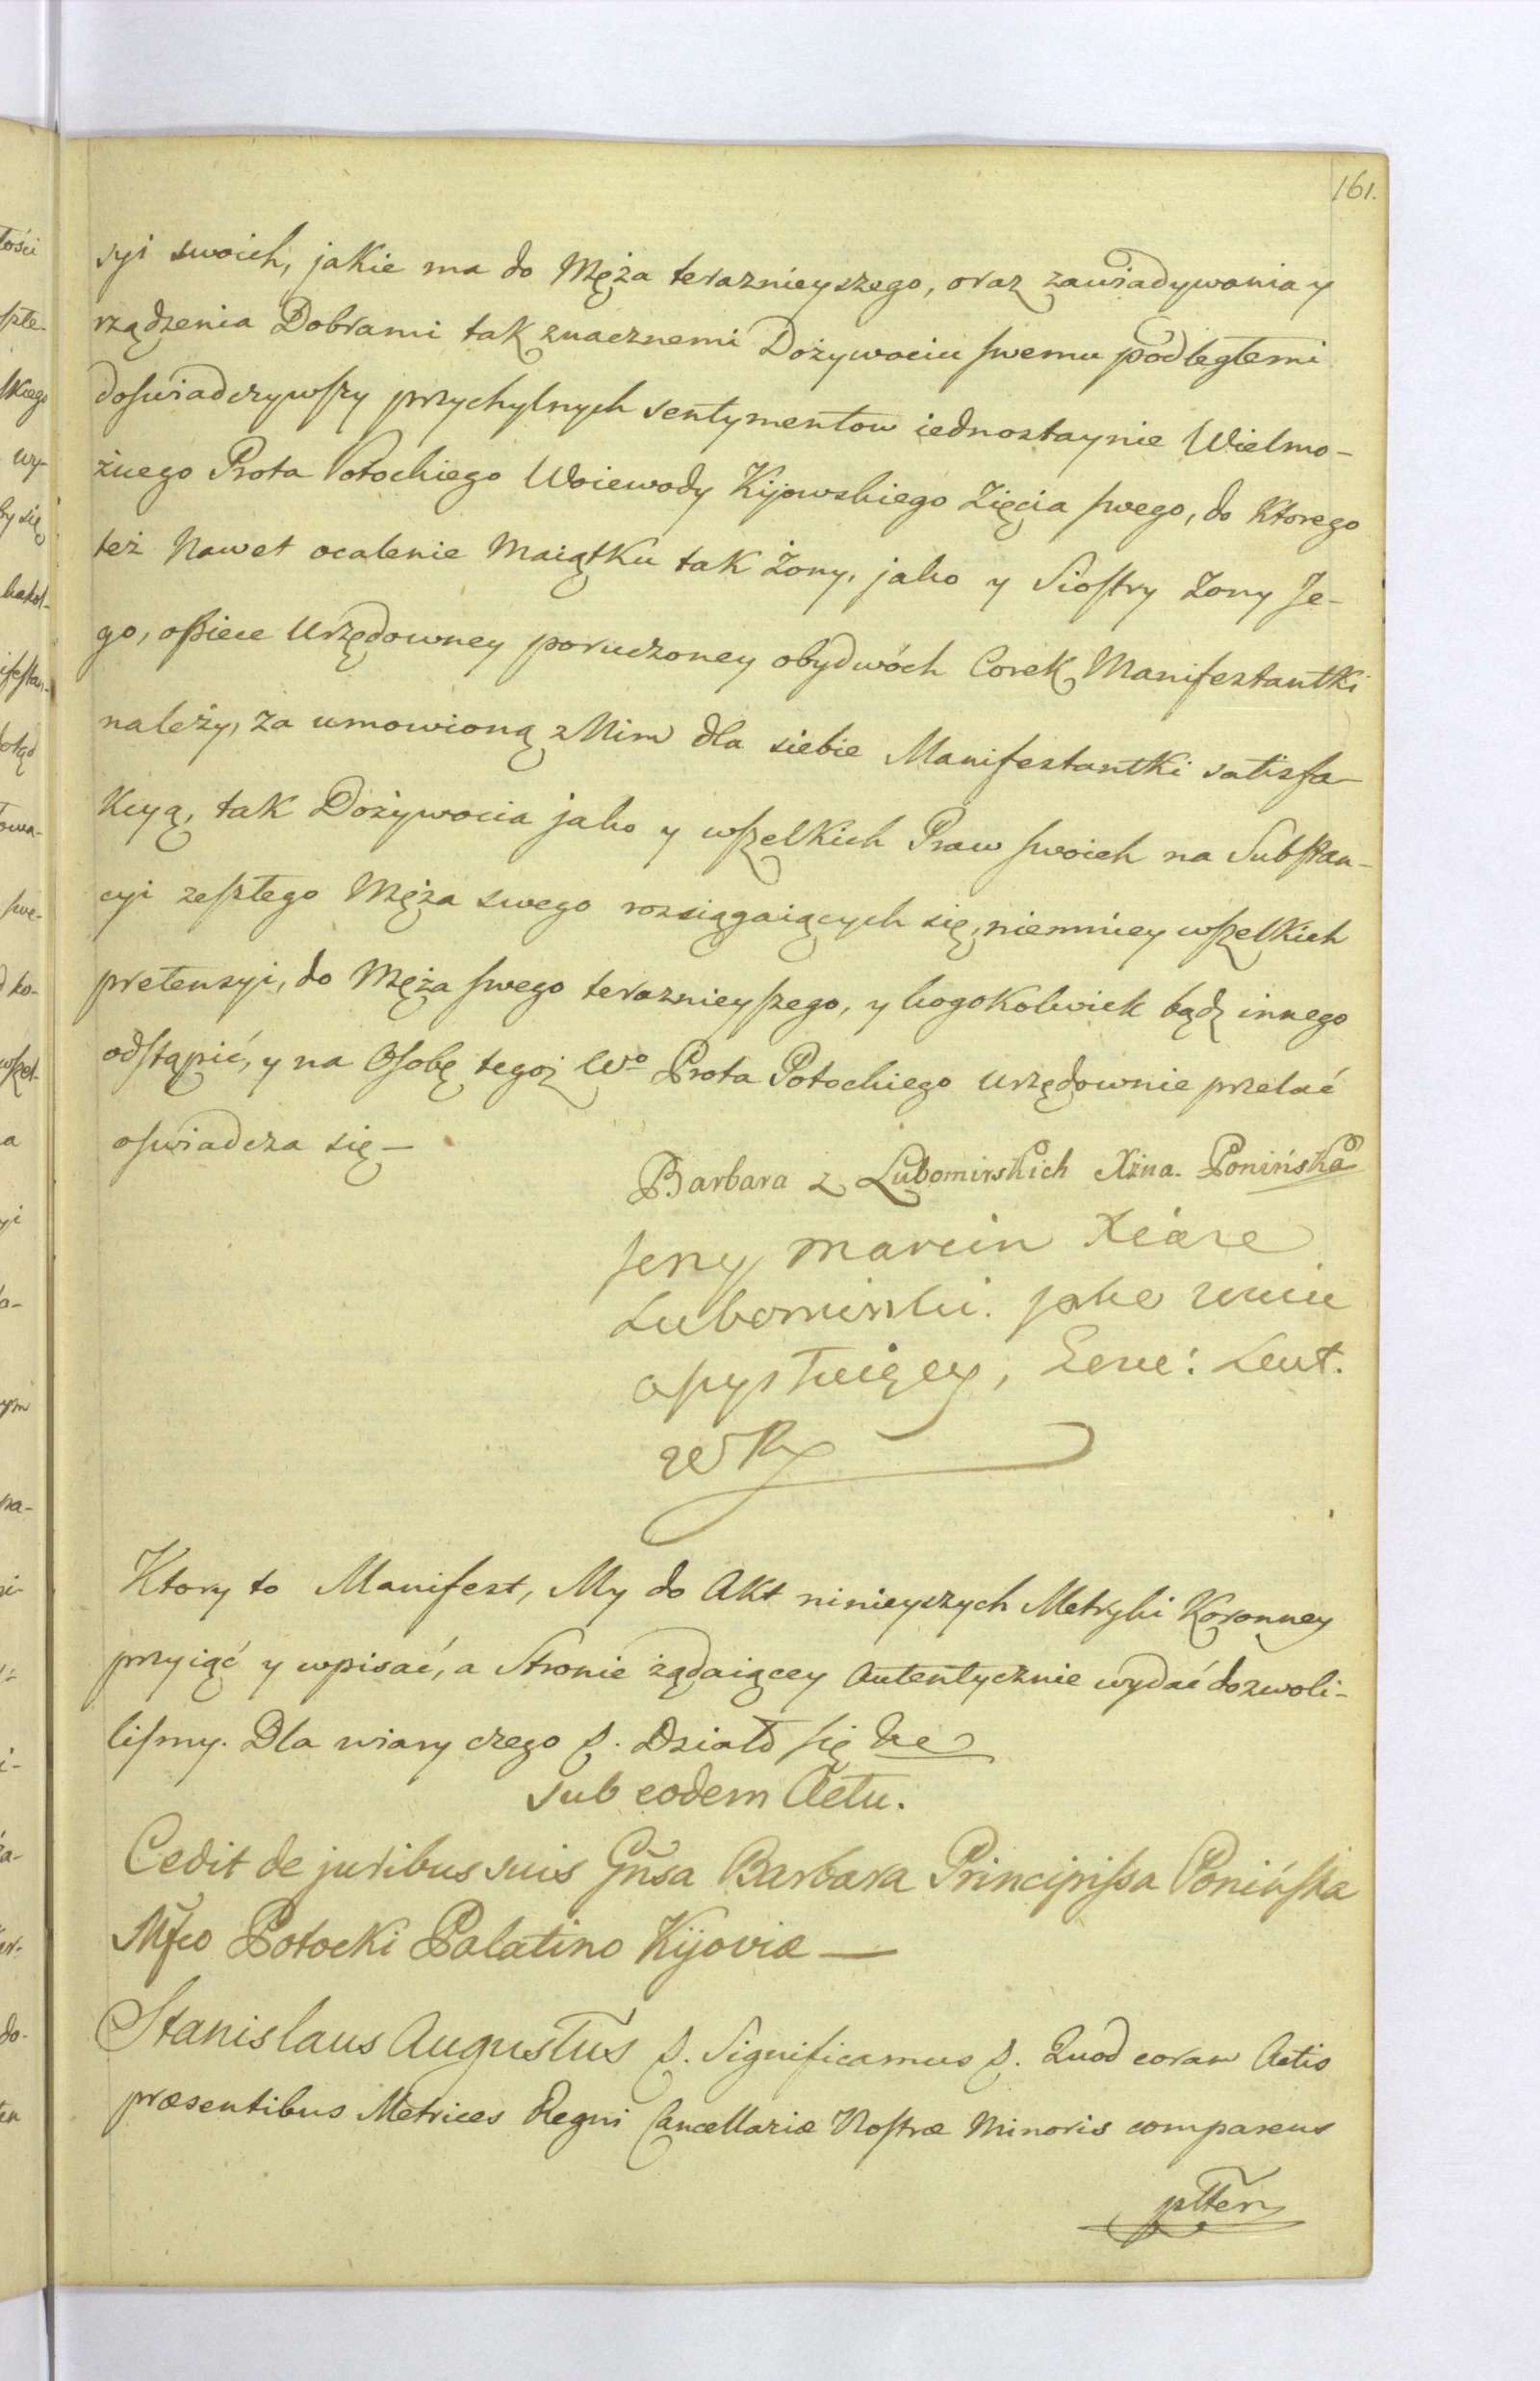 161.
syi swoich, jakie ma do Męża teraznieyszego, oraz zawiadywania y
rządzenia Dobrami tak znacznemi Dożywociu swemu podległemi
doswiadczywszy przychylnych sentymentow iednostaynie Wielmo-
żnego Prota Potockiego Woiewody Kijowskiego Zięcia swego, do Ktorego
też Nawet ocalenie Maiątku tak Żony, jako y Siostry Zony Je-
go, opiece Urzędowney poruczoney obydwóch Corek Manifestantki
należy, za umowioną z Nim dla siebie Manifestantki satisfa-
Kcyą, tak Dożywocia jako y wszelkich Praw swoich na Substan-
cyi zeszłego Męża swego rozsiągaiących się, niemniey wszelkich
pretensyi, do Męża swego teraznieyszego, y kogokolwiek bądz innego
odstąpić, y na Osobę tegoż Wo Prota Potockiego Urzędownie przelać
oswiadcza się —
Barbara z Lubomirskich Xżna. Ponińska
Jerzy Marcin Xiąze
Lubomirski. jako
Gene: Leut.
Ktory to Manifest, My do Akt ninieyszych Metryki Koronney
przyiąć y wpisać, a Stronie żądaiącey Autentycznie wydać dozwoli-
lismy. Dla wiary czego p. Działo się &c
sub eodem Actu.
Cedit de juribus suis Gnsa Barbara Principissa Ponińska
Mfco Potocki Palatino Kijoviæ —
Stanislaus Augustus p. Significamus p. Quod coram Actis
præsentibus Metrices Regni Cancellariæ Nostræ Minoris comparens
pltter